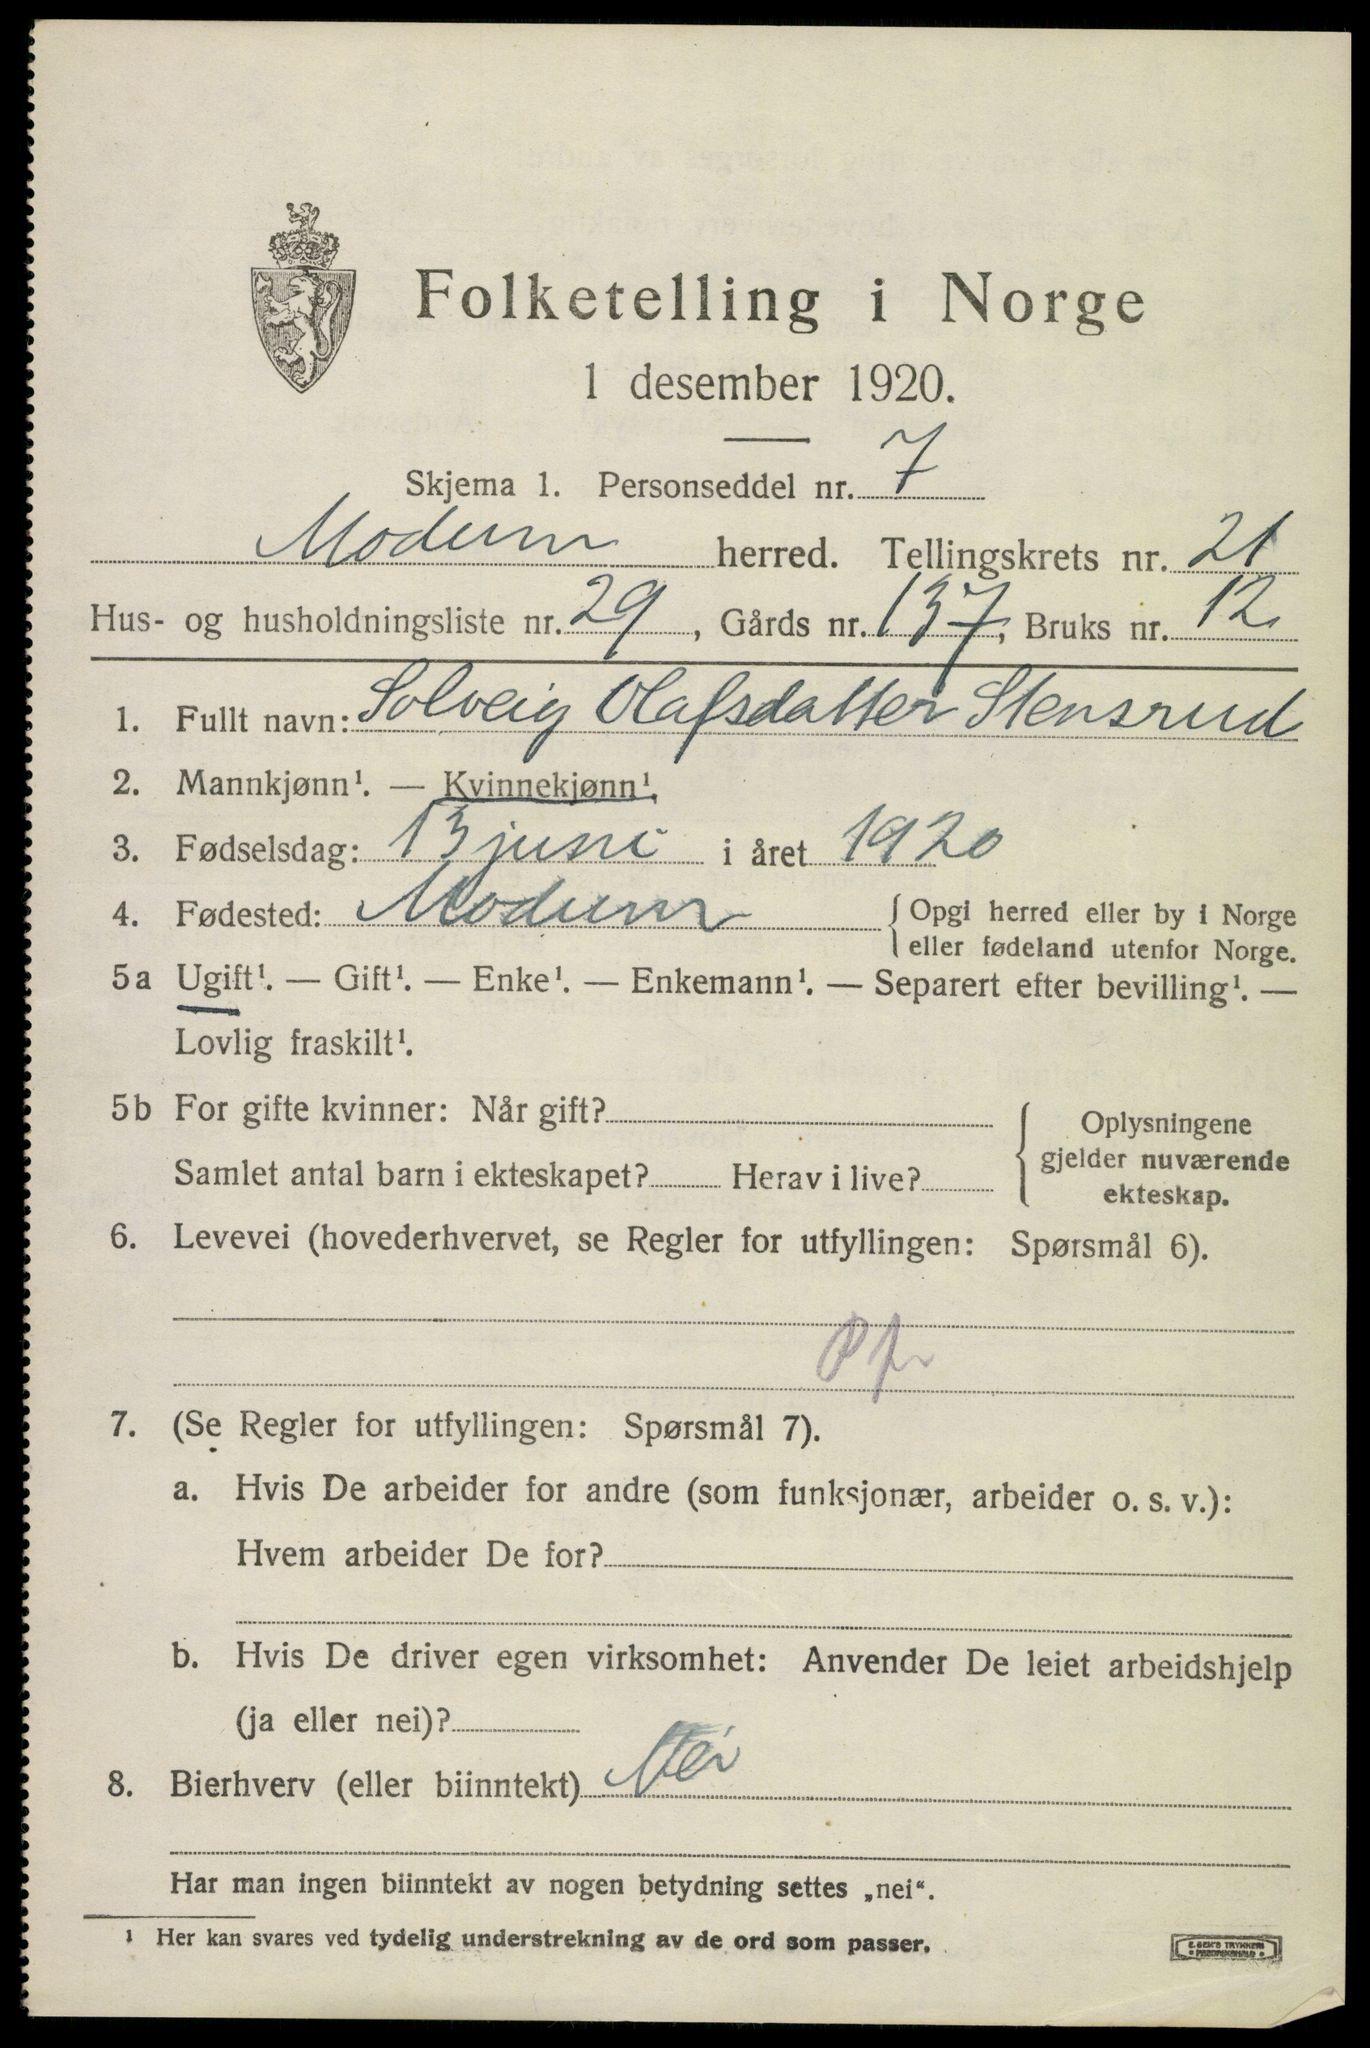 Folketelling i Norge
1 desember 1920.
Skjema 1. Personseddel nr. 7
Modum herred. Tellingskrets nr. 21
Hus- og husholdningsliste nr. 29, Gårds nr. 137, Bruks nr. 12
1. Fullt navn: Solveig Olafsdatter Stensrud
2. Mannkjønn¹. — Kvinnekjønn¹.
3. Fødselsdag: 13 juni i året 1920
4. Fødested: Modum { Opgi herred eller by i Norge
eller fødeland utenfor Norge.
5a Ugift¹. — Gift¹. — Enke¹. — Enkemann¹. — Separert efter bevilling¹. —
Lovlig fraskilt¹.
5b For gifte kvinner: Når gift?
Samlet antal barn i ekteskapet? Herav i live?
{ Oplysningene
gjelder nuværende
ekteskap.
6. Levevei (hovederhvervet, se Regler for utfyllingen: Spørsmål 6).
7. (Se Regler for utfyllingen: Spørsmål 7).
a. Hvis De arbeider for andre (som funksjonær, arbeider o. s. v.):
Hvem arbeider De for?
b. Hvis De driver egen virksomhet: Anvender De leiet arbeidshjelp
(ja eller nei)?
8. Bierhverv (eller biinntekt) Nei
Har man ingen biinntekt av nogen betydning settes „nei“.
¹ Her kan svares ved tydelig understrekning av de ord som passer.
E. SEM'S TRYKKERI
• FREDRIKSHALD •